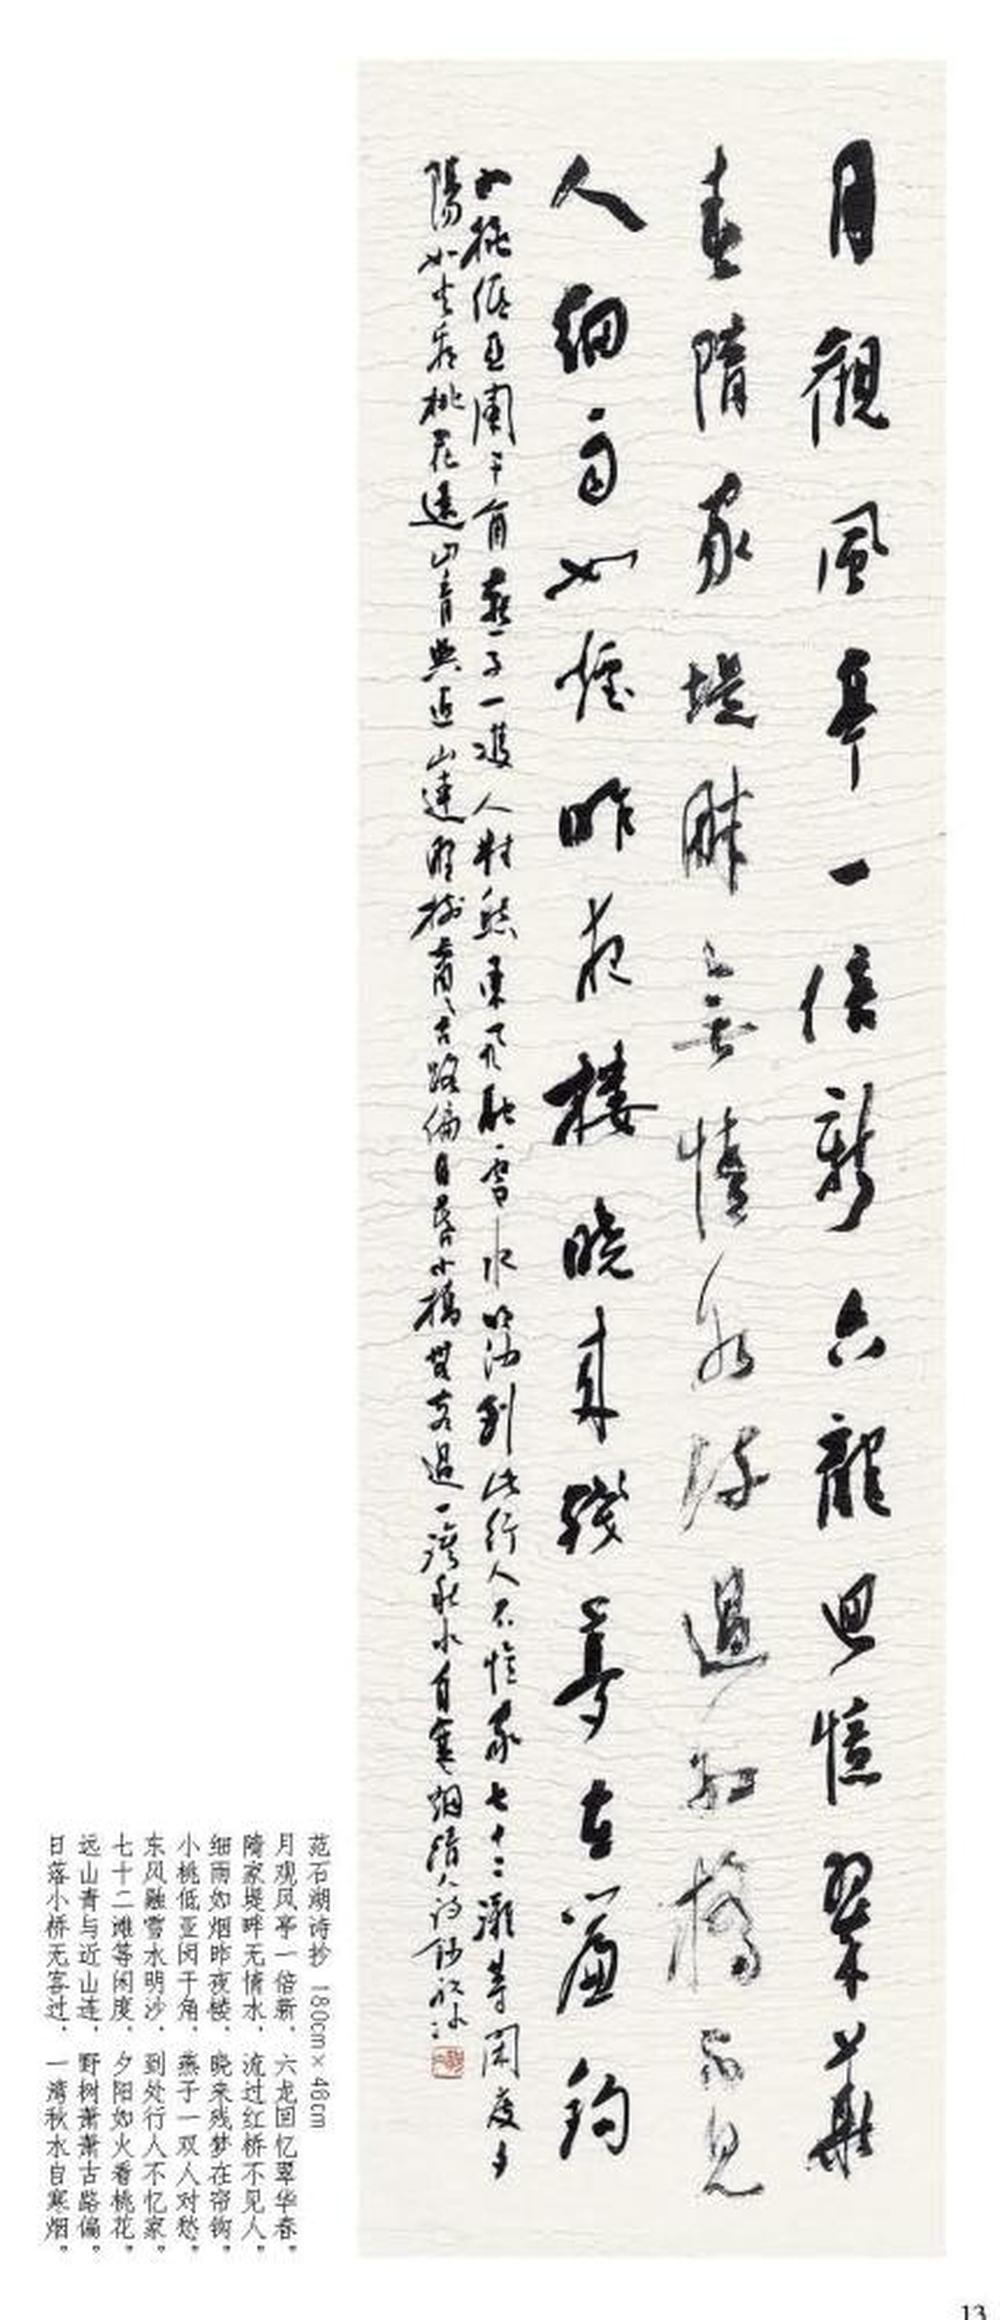 月觀風亭一倍新六龍回憶翠華
春隋家堤畔無情水流過紅橋不見
人細雨如煙昨夜樓曉來殘夢在簾鉤
小桃低亞闌干角燕子一雙人對愁東風融雪水明沙到處行人不憶家七十二灘等閑度夕
陽如火看桃花遠山青與近山連野樹蕭蕭古路偏日落小橋無客過一灣秋水自寒烟清人詩抄
范石湖诗抄 180cm×48cm
月观风亭一倍新，六龙回忆翠华春。
隋家堤畔无情水，流过红桥不见人。
细雨如烟昨夜楼，晓来残梦在帘钩。
小桃低亚闵干角，燕子一双人对愁。
东风融雪水明沙，到处行人不忆家。
七十二滩等闲度，夕阳如火看桃花。
远山青与近山连，野树萧萧古路偏。
日落小桥无客过，一湾秋水自寒烟。
13